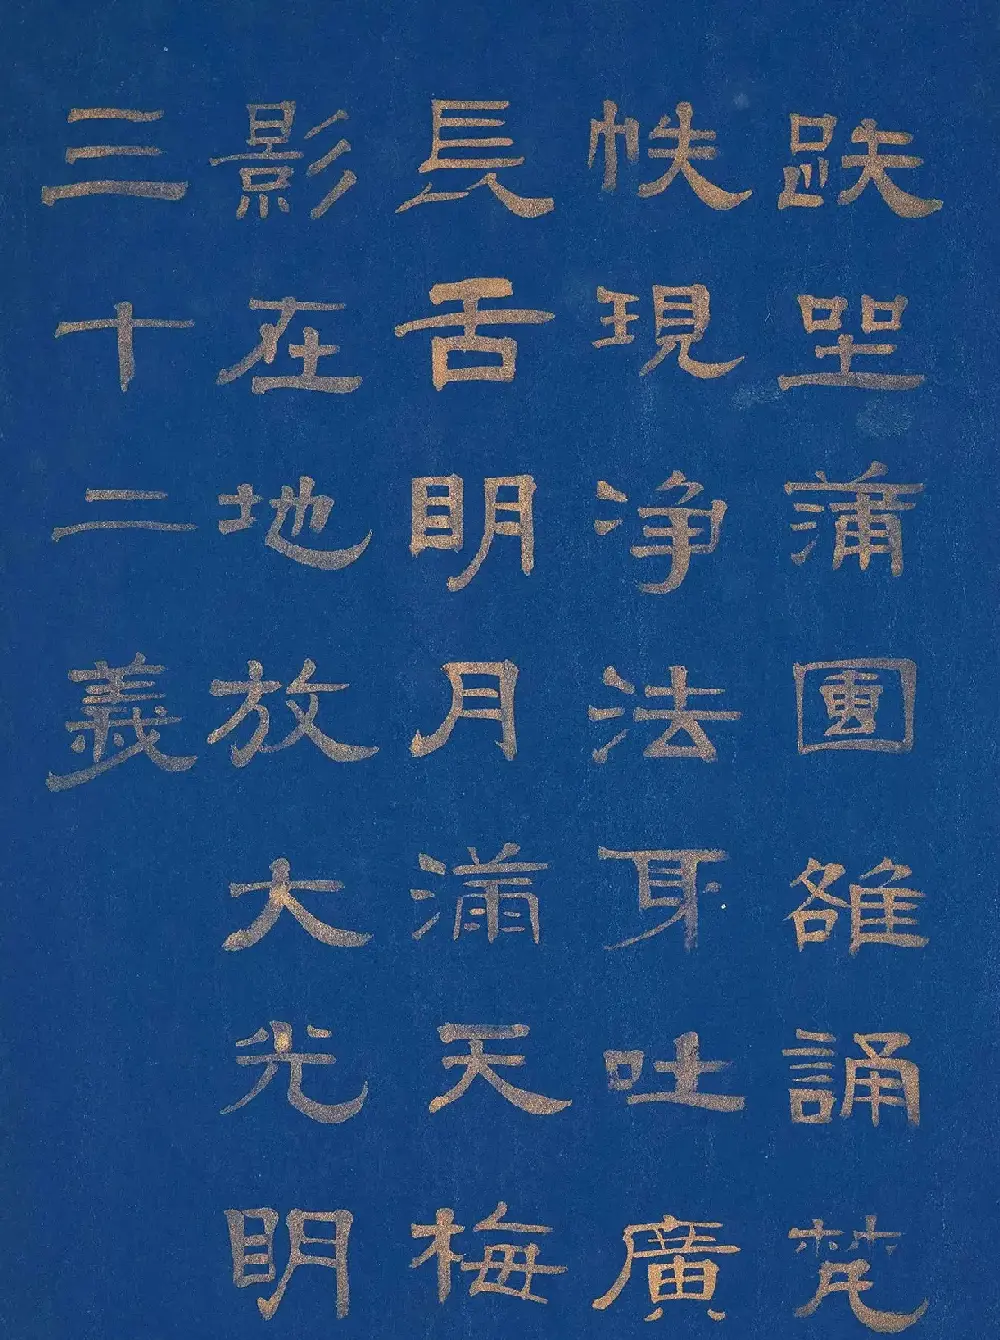 趺坐蒲團雒誦梵
帙現淨法身吐廣
長舌明月滿天梅
影在地放大光明
三十二義